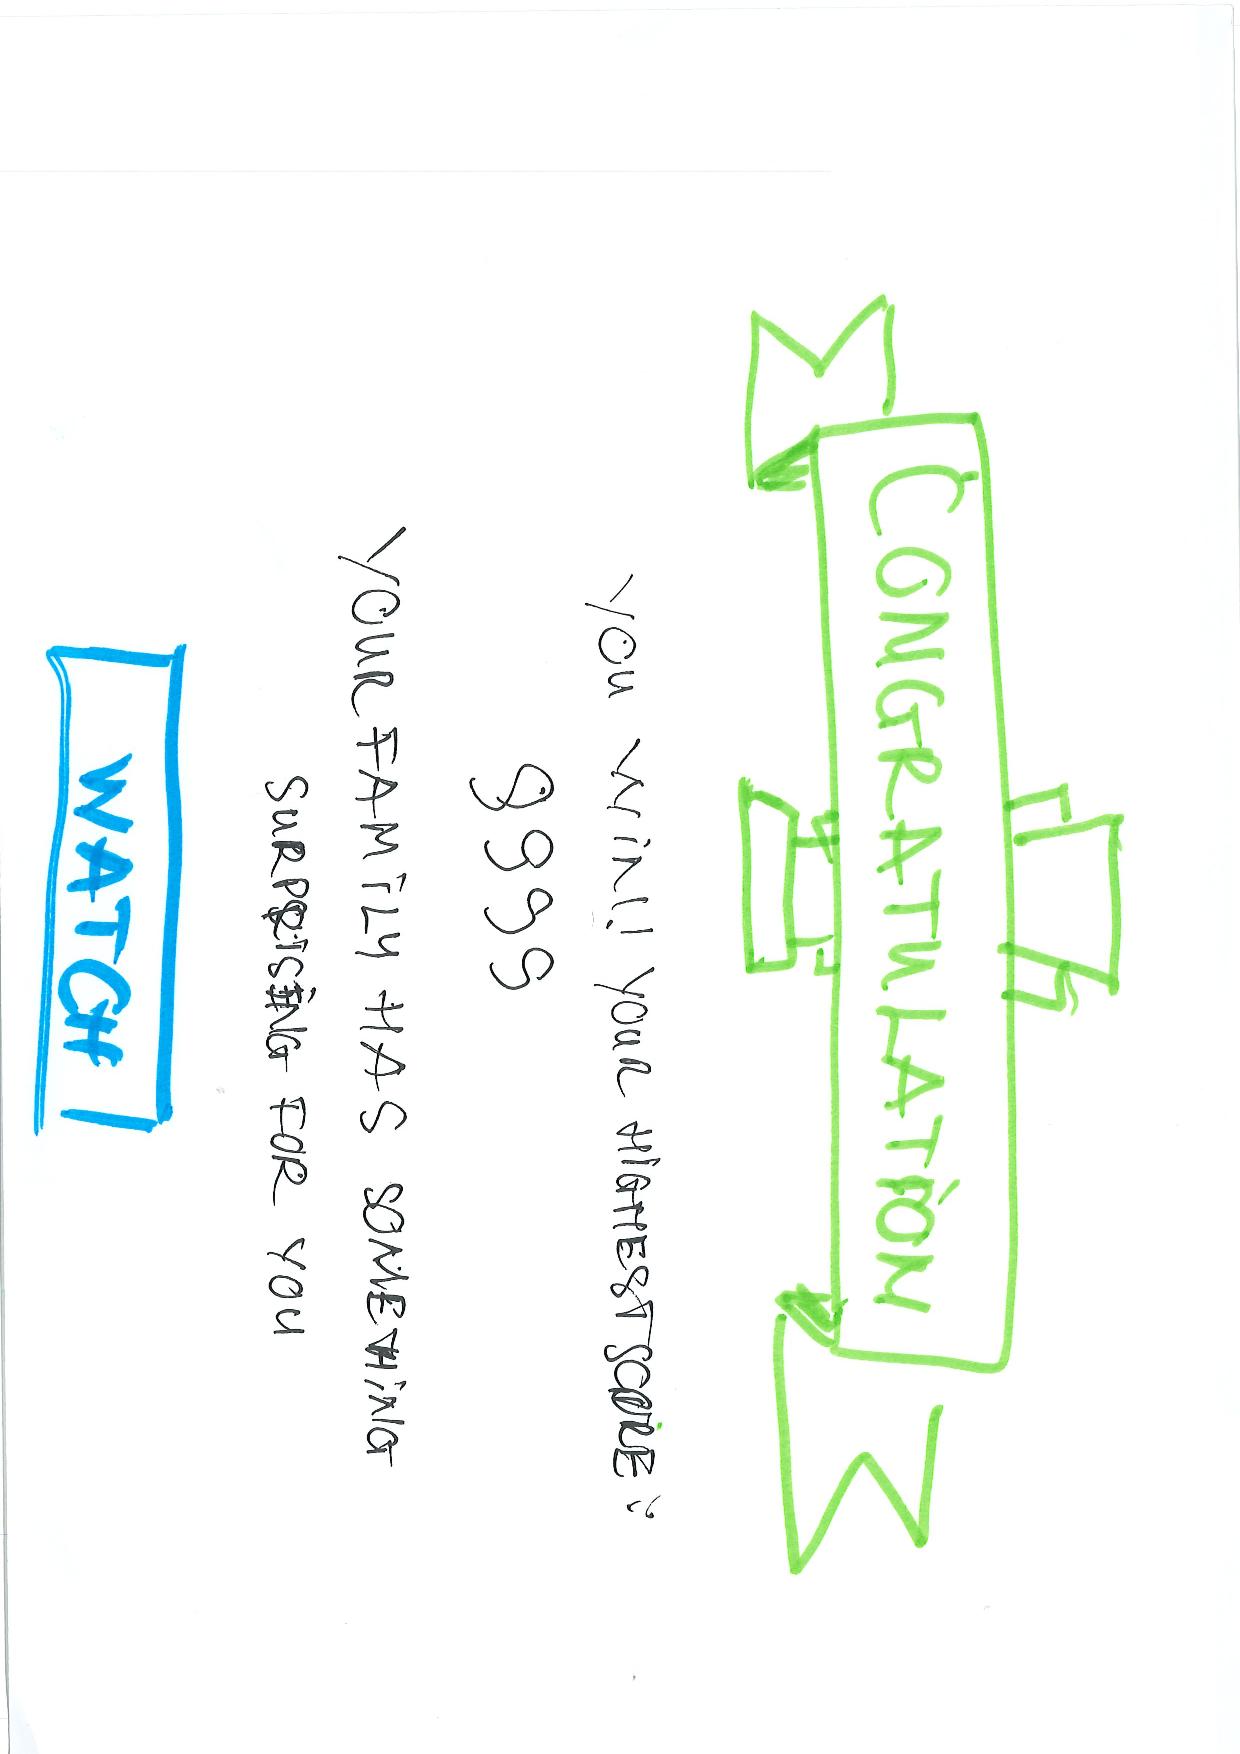 CONGRATULATION
YOU WIN!! YOUR HIGHEST SCORE:
9999
YOUR FAMILY HAS SOMETHING
SURPRISING FOR YOU
WATCH